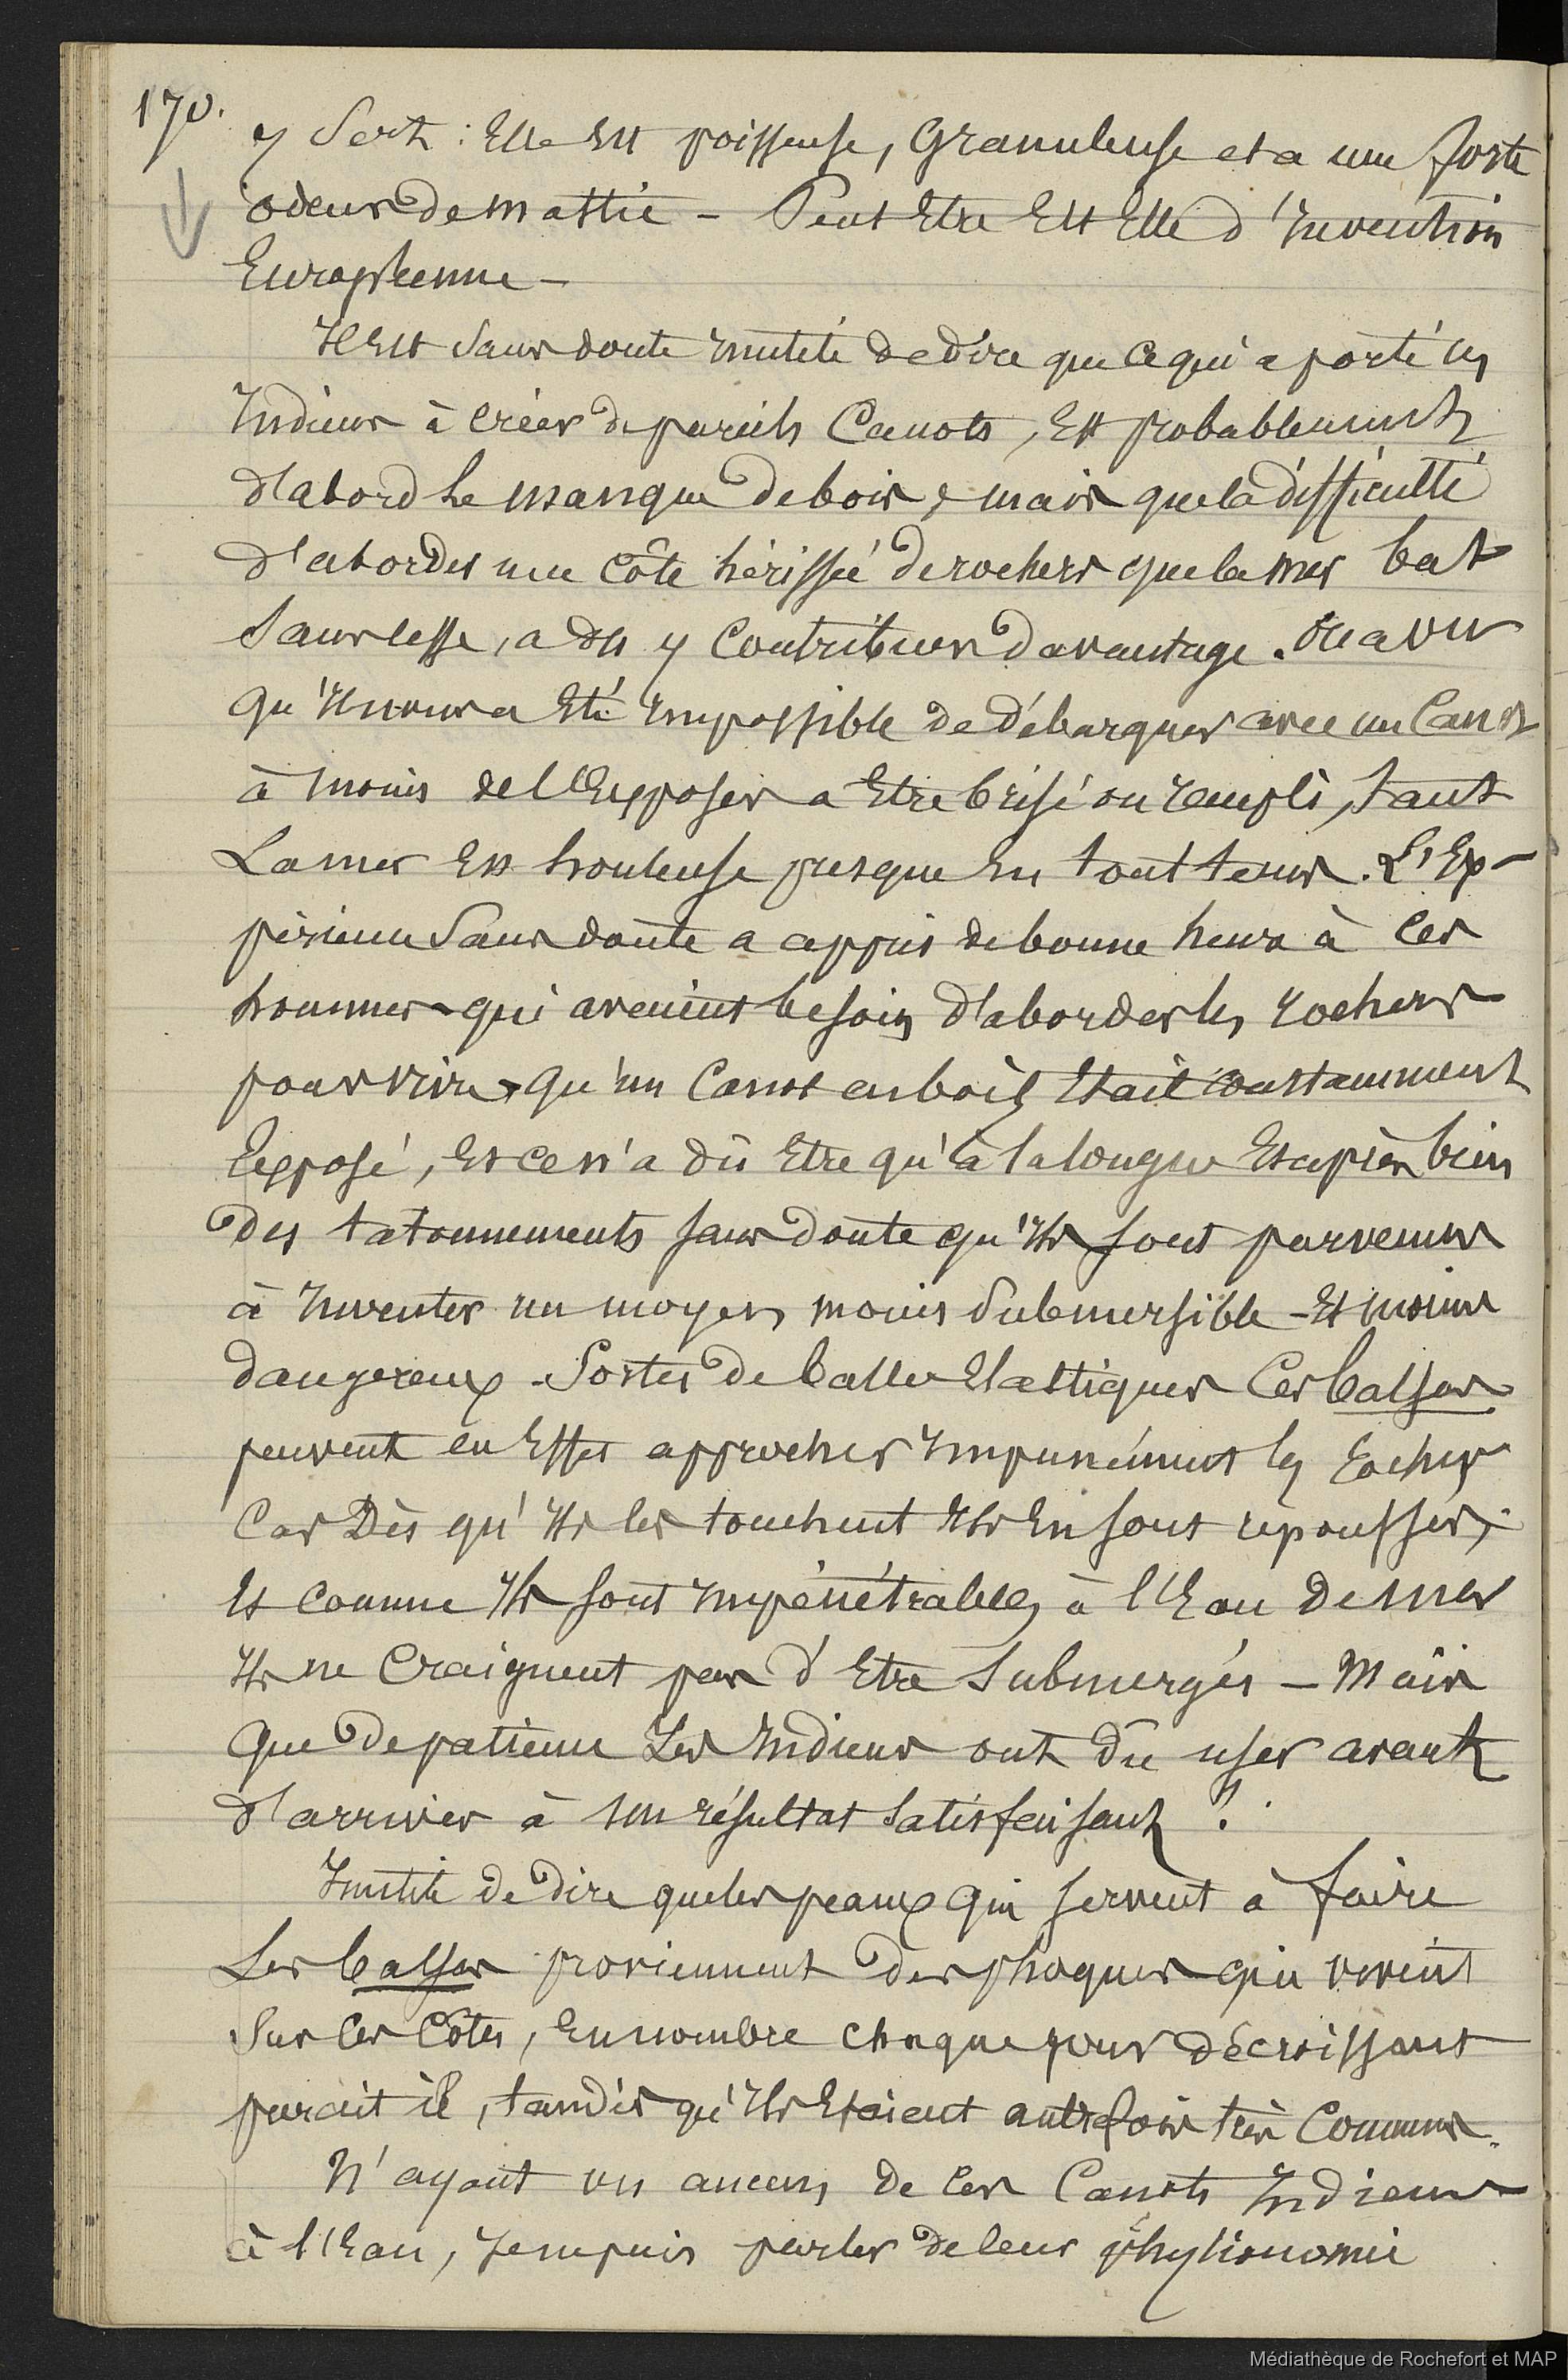 170.
y sert : Elle Est poisseuse, Granuleuse et a une forte
odeur de mastic - Peut Etre Est Elle d'Invention
Européenne -
Il Est sans doute Inutile de dire que ce qui a porté les
Indiens à créer de pareils Canots, Est probablement
d'abord Le manque de bois, mais que la difficulté
d'aborder une côte hérissée de rochers que la mer bat
sans cesse, a du y Contribuer davantage. On a vu
qu'Il nous a Eté Impossible de débarquer avec un Canot
à moins de l'Exposer a Etre brisé ou rempli, tant
La mer Est houleuse presque En tout tems. L'Ex-
périence sans doute a appris de bonne heure à Ces
hommes qui avaient besoin d'aborder les rochers
pour vivre, qu'un Canot en bois Etait constamment
Exposé, Et ce n'a dû Etre qu'à la longue Et après bien
des tatonnements sans doute qu'Ils sont parvenus
à Inventer un moyen moins submersible - Et moins
dangereux - Sortes de balles Elastiques Ces balsas
peuvent en Effet approcher Impunément les rochers
Car Dès qu'Ils les touchent Ils En sont repoussés,
Et comme Ils sont Impénétrables à l'Eau de mer
Ils ne Craignent pas d'Etre submergés - Mais
Que de patience Les Indiens ont dû user avant
d'arriver à un résultat satisfaisant !.
Inutile de dire que les peaux qui servent à faire
Les balsas proviennent des phoques qui vivent
sur les Côtes, En nombre chaque jour décroissant
parait il, tandis qu'Ils Etaient autrefois très Communs.
N'ayant vu aucun de Ces Canots Indiens
à l'Eau, Je ne puis parler de leur physionomie
Médiathèque de Rochefort et MAP